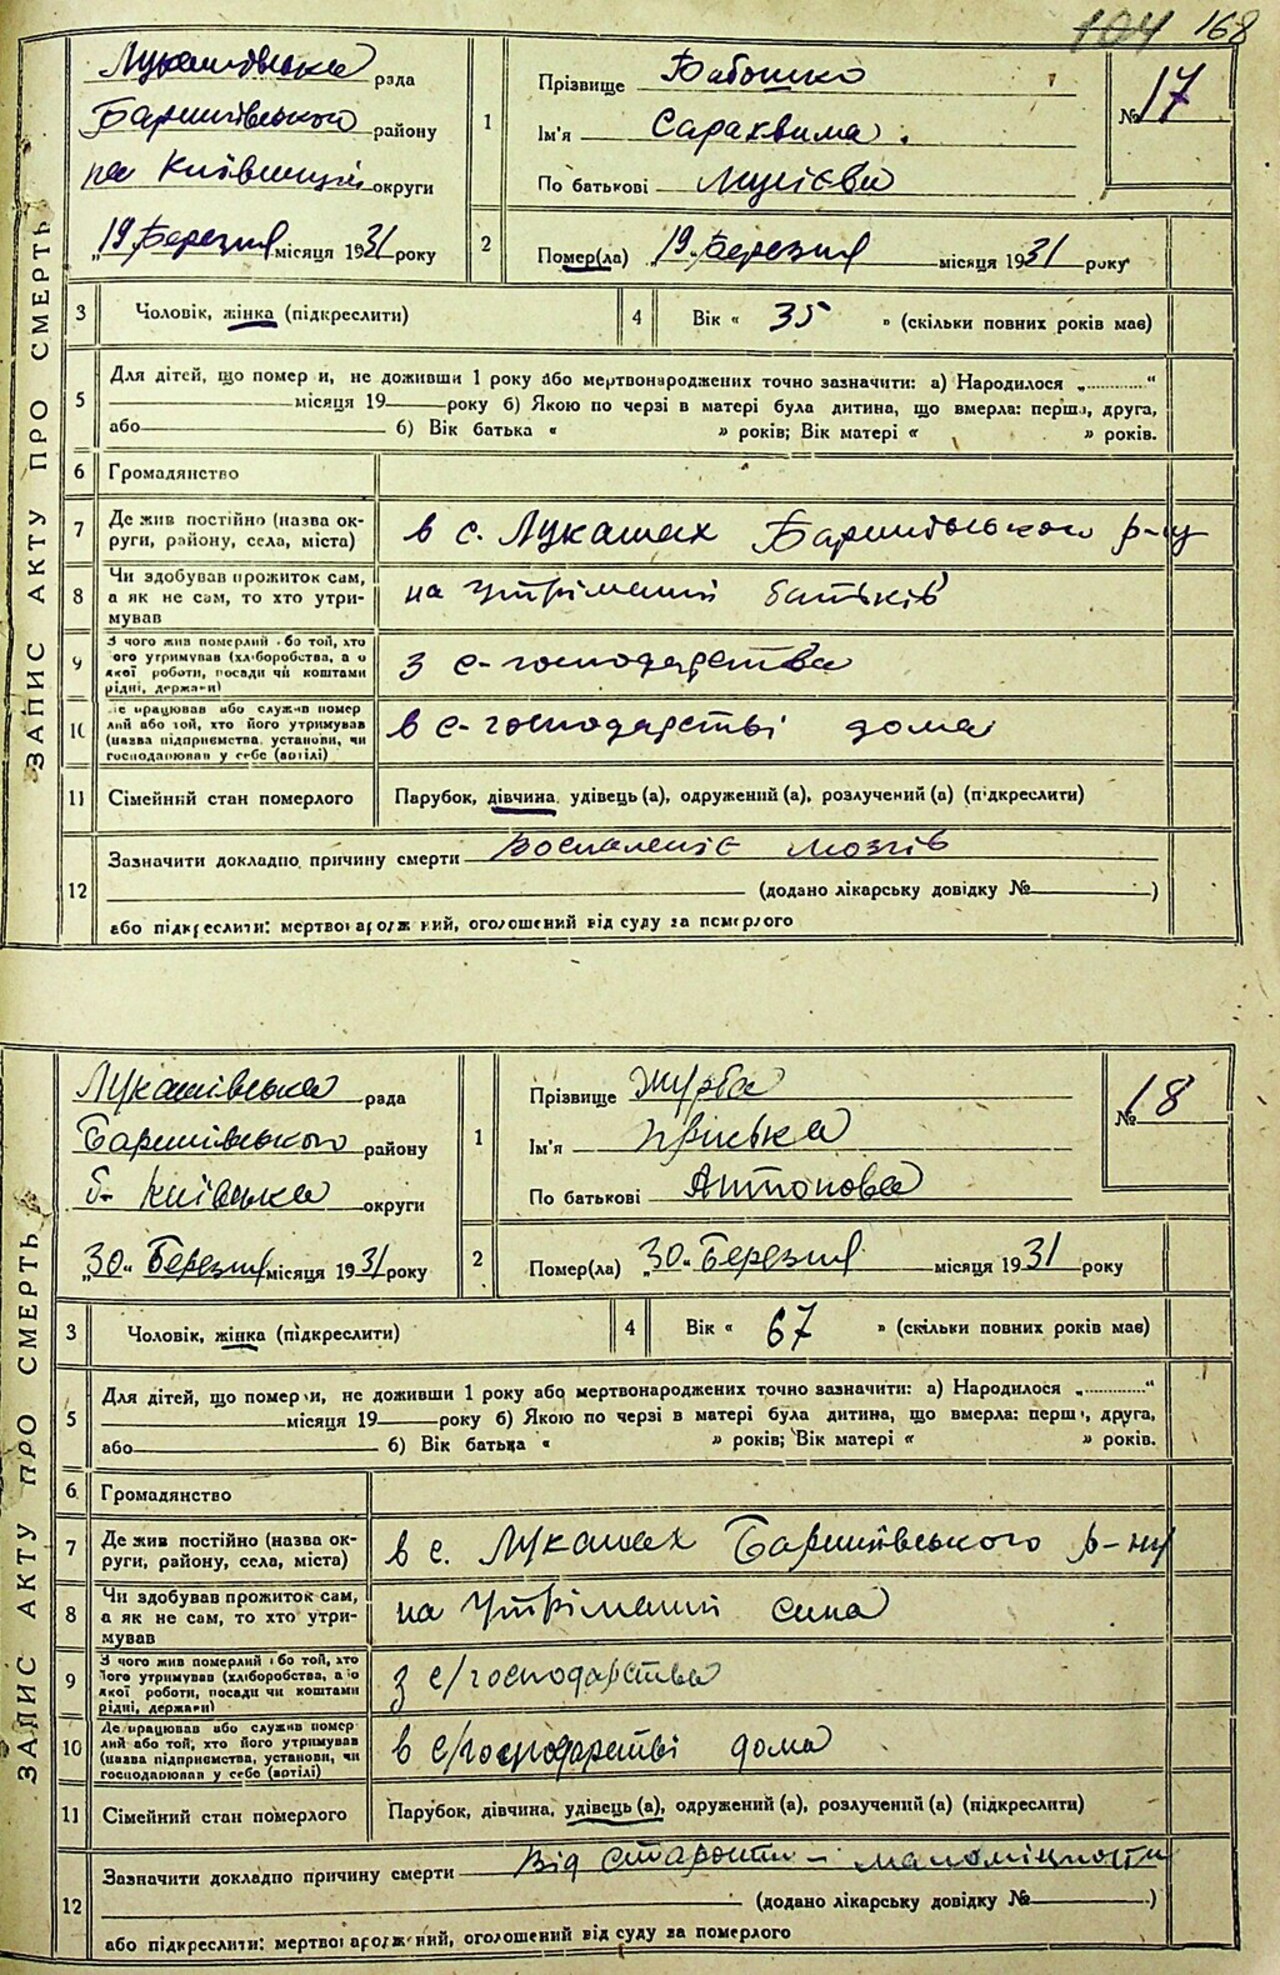 104 168
ЗАПИС АКТУ ПРО СМЕРТЬ
Лукашівська рада
Баришівського району
на Київщині округи
„19„ Березня місяця 1931 року
1
Прізвище Бабошко
Ім'я Сарахвима
По батькові Мусієва
№ 17
2
Помер(ла) „19„ Березня місяця 1931 року
3 Чоловік, жінка (підкреслити)
4 Вік « 35 » (скільки повних років має)
5 Для дітей, що помер и, не доживши 1 року або мертвонароджених точно зазначити: а) Народилося „............“
місяця 19 року б) Якою по черзі в матері була дитина, що вмерла: перша, друга,
або б) Вік батька « » років; Вік матері « » років.
6 Громадянство
7 Де жив постійно (назва ок-
руги, району, села, міста)
в с. Лукашах Баришівського р-ну
8 Чи здобував прожиток сам,
а як не сам, то хто утри-
мував
на утріманні батьків
9 З чого жив померлий або той, хто
його утримував (хліборобства, а о
якої роботи, посади чи коштами
рідні, держави)
з с-господарства
10 Де працював або служив помер
лий або той, хто його утримував
(назва підприємства, установи, чи
господарював у себе (артілі)
в с-господарстві дома
11 Сімейний стан померлого
Парубок, дівчина, удівець (а), одружений (а), розлучений (а) (підкреслити)
12 Зазначити докладно причину смерти Воспаленіє мозгів
(додано лікарську довідку № )
або підкреслити: мертвонароджений, оголошений від суду за померлого
ЗАПИС АКТУ ПРО СМЕРТЬ
Лукашівська рада
Баришівського району
б. Київська округи
„30„ Березня місяця 1931 року
1
Прізвище Журба
Ім'я Пріська
По батькові Антонова
№ 18
2
Помер(ла) „30„ Березня місяця 1931 року
3 Чоловік, жінка (підкреслити)
4 Вік « 67 » (скільки повних років має)
5 Для дітей, що помер и, не доживши 1 року або мертвонароджених точно зазначити: а) Народилося „............“
місяця 19 року б) Якою по черзі в матері була дитина, що вмерла: перша, друга,
або б) Вік батька « » років; Вік матері « » років.
6 Громадянство
7 Де жив постійно (назва ок-
руги, району, села, міста)
в с. Лукашах Баришівського р-ну
8 Чи здобував прожиток сам,
а як не сам, то хто утри-
мував
на утріманні сина
9 З чого жив померлий або той, хто
його утримував (хліборобства, а о
якої роботи, посади чи коштами
рідні, держави)
з с/господарства
10 Де працював або служив помер
лий або той, хто його утримував
(назва підприємства, установи, чи
господарював у себе (артілі)
в с/господарстві дома
11 Сімейний стан померлого
Парубок, дівчина, удівець (а), одружений (а), розлучений (а) (підкреслити)
12 Зазначити докладно причину смерти Від старости – маломіцности
(додано лікарську довідку № )
або підкреслити: мертвонароджений, оголошений від суду за померлого